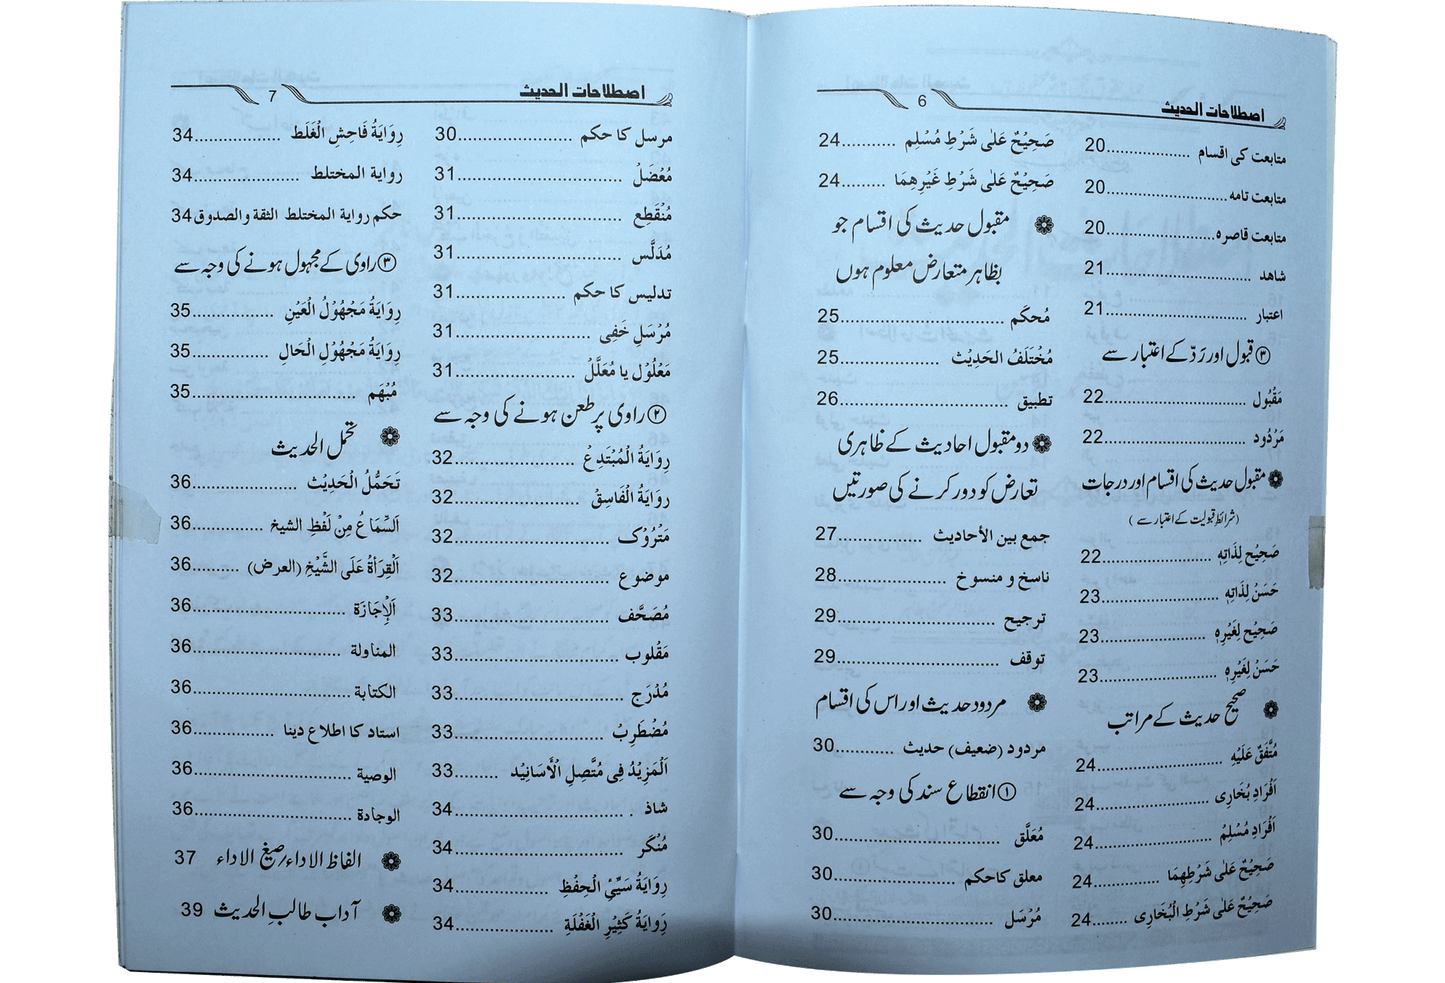 اصطلاحات الحدیث
6
متابعت کی اقسام ..................20
متابعت تامہ ..................20
متابعت قاصرہ..................20
شاھد ..................21
اعتبار ..................21
③ قبول اور رَدّ کے اعتبار سے
مَقْبُول ..................22
مَرْدُود ..................22
مقبول حدیث کی اقسام اور درجات
(شرائطِ قبولیت کے اعتبار سے)
صَحِیْح لِذَاتِہٖ ..................22
حَسَنْ لِذَاتِہٖ ..................23
صَحِیْح لِغَیْرِہٖ ..................23
حَسَنْ لِغَیْرِہٖ ..................23
صحیح حدیث کے مراتب
مُتَّفَقٌ عَلَیْہِ ..................24
اَفْرَادِ بُخَارِی ..................24
اَفْرَادِ مُسْلِمْ ..................24
صَحِیْحٌ عَلٰی شَرْطِھِمَا ............24
صَحِیْحٌ عَلٰی شَرْطِ الْبُخَارِی .......24
صَحِیْحٌ عَلٰی شَرْطِ مُسْلِم ..........24
صَحِیْحٌ عَلٰی شَرْطِ غَیْرِھِمَا .........24
مقبول حدیث کی اقسام جو
بظاہر متعارض معلوم ہوں
مُحکَم ..................25
مُخْتَلَفُ الحَدِیْث ..................25
تطبیق ..................26
دو مقبول احادیث کے ظاہری
تعارض کو دور کرنے کی صورتیں
جمع بین الأحادیث ..................27
ناسخ و منسوخ ..................28
ترجیح ..................29
توقف ..................29
مردود حدیث اور اس کی اقسام
مردود (ضعیف) حدیث ..........30
① انقطاع سند کی وجہ سے
مُعَلَّق ..................30
معلق کاحکم ..................30
مُرْسَل ..................30
اصطلاحات الحدیث
7
مرسل کا حکم ..................30
مُعْضَلْ ..................31
مُنْقَطِع ..................31
مُدَلَّس ..................31
تدلیس کا حکم ..................31
مُرْسَلِ خَفِی ..................31
مَعْلُوْل یا مُعَلَّلْ ..................31
② راوی پر طعن ہونے کی وجہ سے
رِوَایَةُ الْمُبْتَدِعْ ..................32
رِوَایَةُ الْفَاسِقْ ..................32
مَتْرُوْک ..................32
موضوع ..................32
مُصَحَّف ..................33
مَقْلُوب ..................33
مُدْرَج ..................33
مُضْطَرِبْ ..................33
اَلْمَزِیْدُ فِی مُتَّصِلِ الْأَسَانِیْد ........33
شاذ ..................34
مُنْکَر ..................34
رِوَایَةُ سَیِّیِٔ الْحِفْظِ ..................34
رِوَایَةُ کَثِیْرِ الْغَفْلَةِ ..................34
رِوَایَةُ فَاحِشِ الْغَلَط ..................34
روایة المختلط ..................34
حکم روایة المختلط الثقة والصدوق34
③ راوی کے مجہول ہونے کی وجہ سے
رِوَایَةُ مَجْهُوْلُ الْعَیْنِ ..............35
رِوَایَةُ مَجْهُوْلِ الْحَالِ ..............35
مُبْهَم ..................35
تحمل الحدیث
تَحَمُّلُ الْحَدِیْث ..................36
اَلسَّمَاعُ مِنْ لَفْظِ الشیخ ..........36
اَلْقِرَأةُ عَلَی الشَّیْخِ (العرض) .........36
اَلْإجَازَة ..................36
المناولة ..................36
الکتابة ..................36
استاد کا اطلاع دینا ..................36
الوصیة ..................36
الوجادة ..................36
الفاظ الاداء/صیغ الاداء 37
آداب طالبِ الحدیث 39